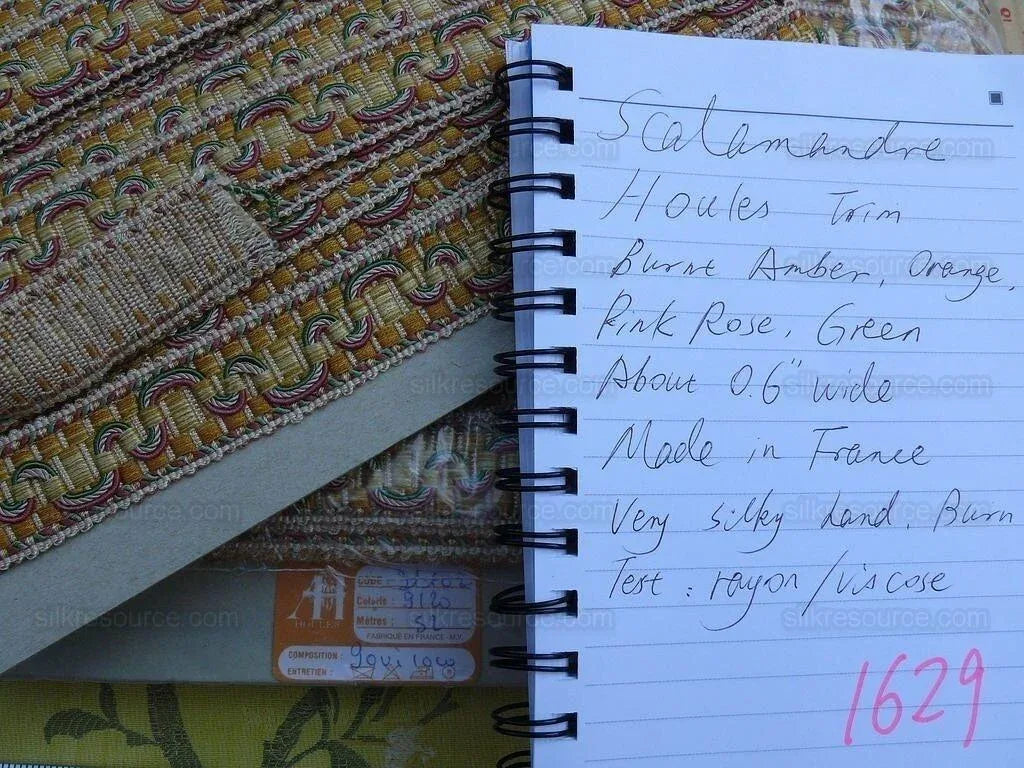 Scalamandre
Houles Trim
Burnt Amber, Orange,
Pink Rose, Green
About 0.6" wide
Made in France
Very silky hand. Burn
Test: rayon/viscose
1629
HOULES
CODE :
Coloris : 9120
Mètres : 52
FABRIQUÉ EN FRANCE - M.V.
COMPOSITION :
ENTRETIEN :
silkresource.com